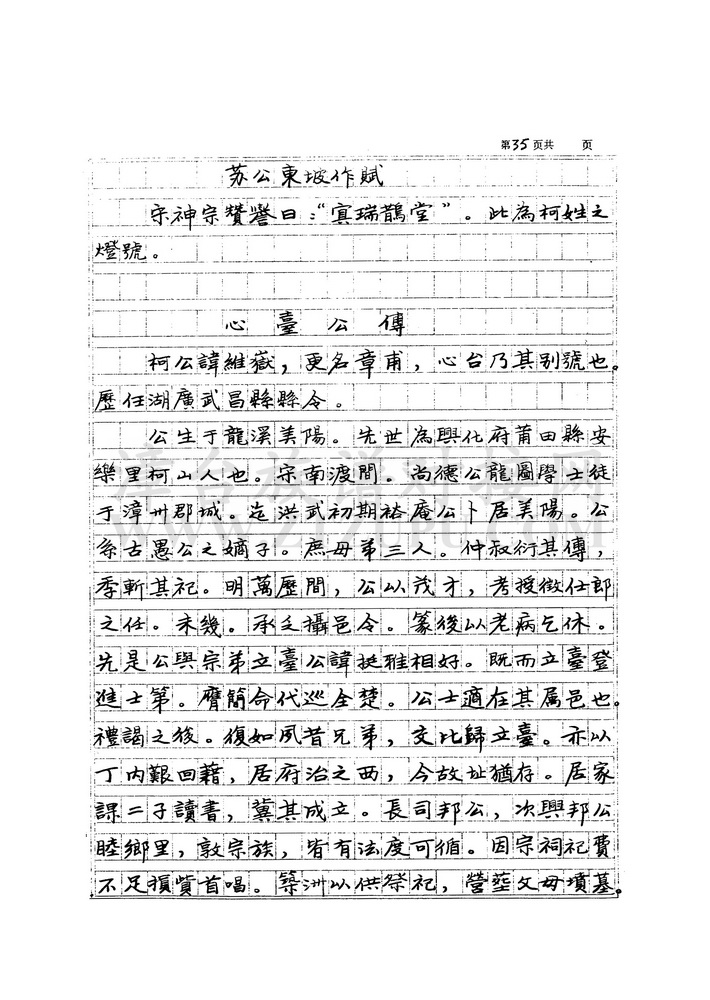 第35页共 页
苏公東坡作賦
宋神宗贊譽曰：“寘瑞鵲堂”。此為柯姓之
燈號。
心臺公傳
柯公諱維嶽，更名章甫，心台乃其别號也。
歷任湖廣武昌縣縣令。
公生于龍溪美陽。先世為興化府莆田縣安
樂里柯山人也。宋南渡間。尚德公龍圖學士徒
于漳州郡城。迄洪武初期裕庵公卜居美陽。公
系古愚公之嫡子。庶母弟三人。仲叔衍其傳，
季斬其祀。明萬歷間，公以茂才，考授徵仕郎
之任。未幾。承乏攝邑令。篆後以老病乞休。
先是公與宗弟立臺公諱挺雅相好。既而立臺登
進士第。膺簡命代巡全楚。公士適在其属邑也。
禮謁之後。復如夙昔兄弟，交比歸立臺。亦以
丁内艱回藉，居府治之西，今故址猶存。居家
課二子讀書，冀其成立。長司邦公，次興邦公
睦鄉里，敦宗族，皆有法度可循。因宗祠祀費
不足損貲首唱。築洲以供祭祀，營塟父母墳墓。